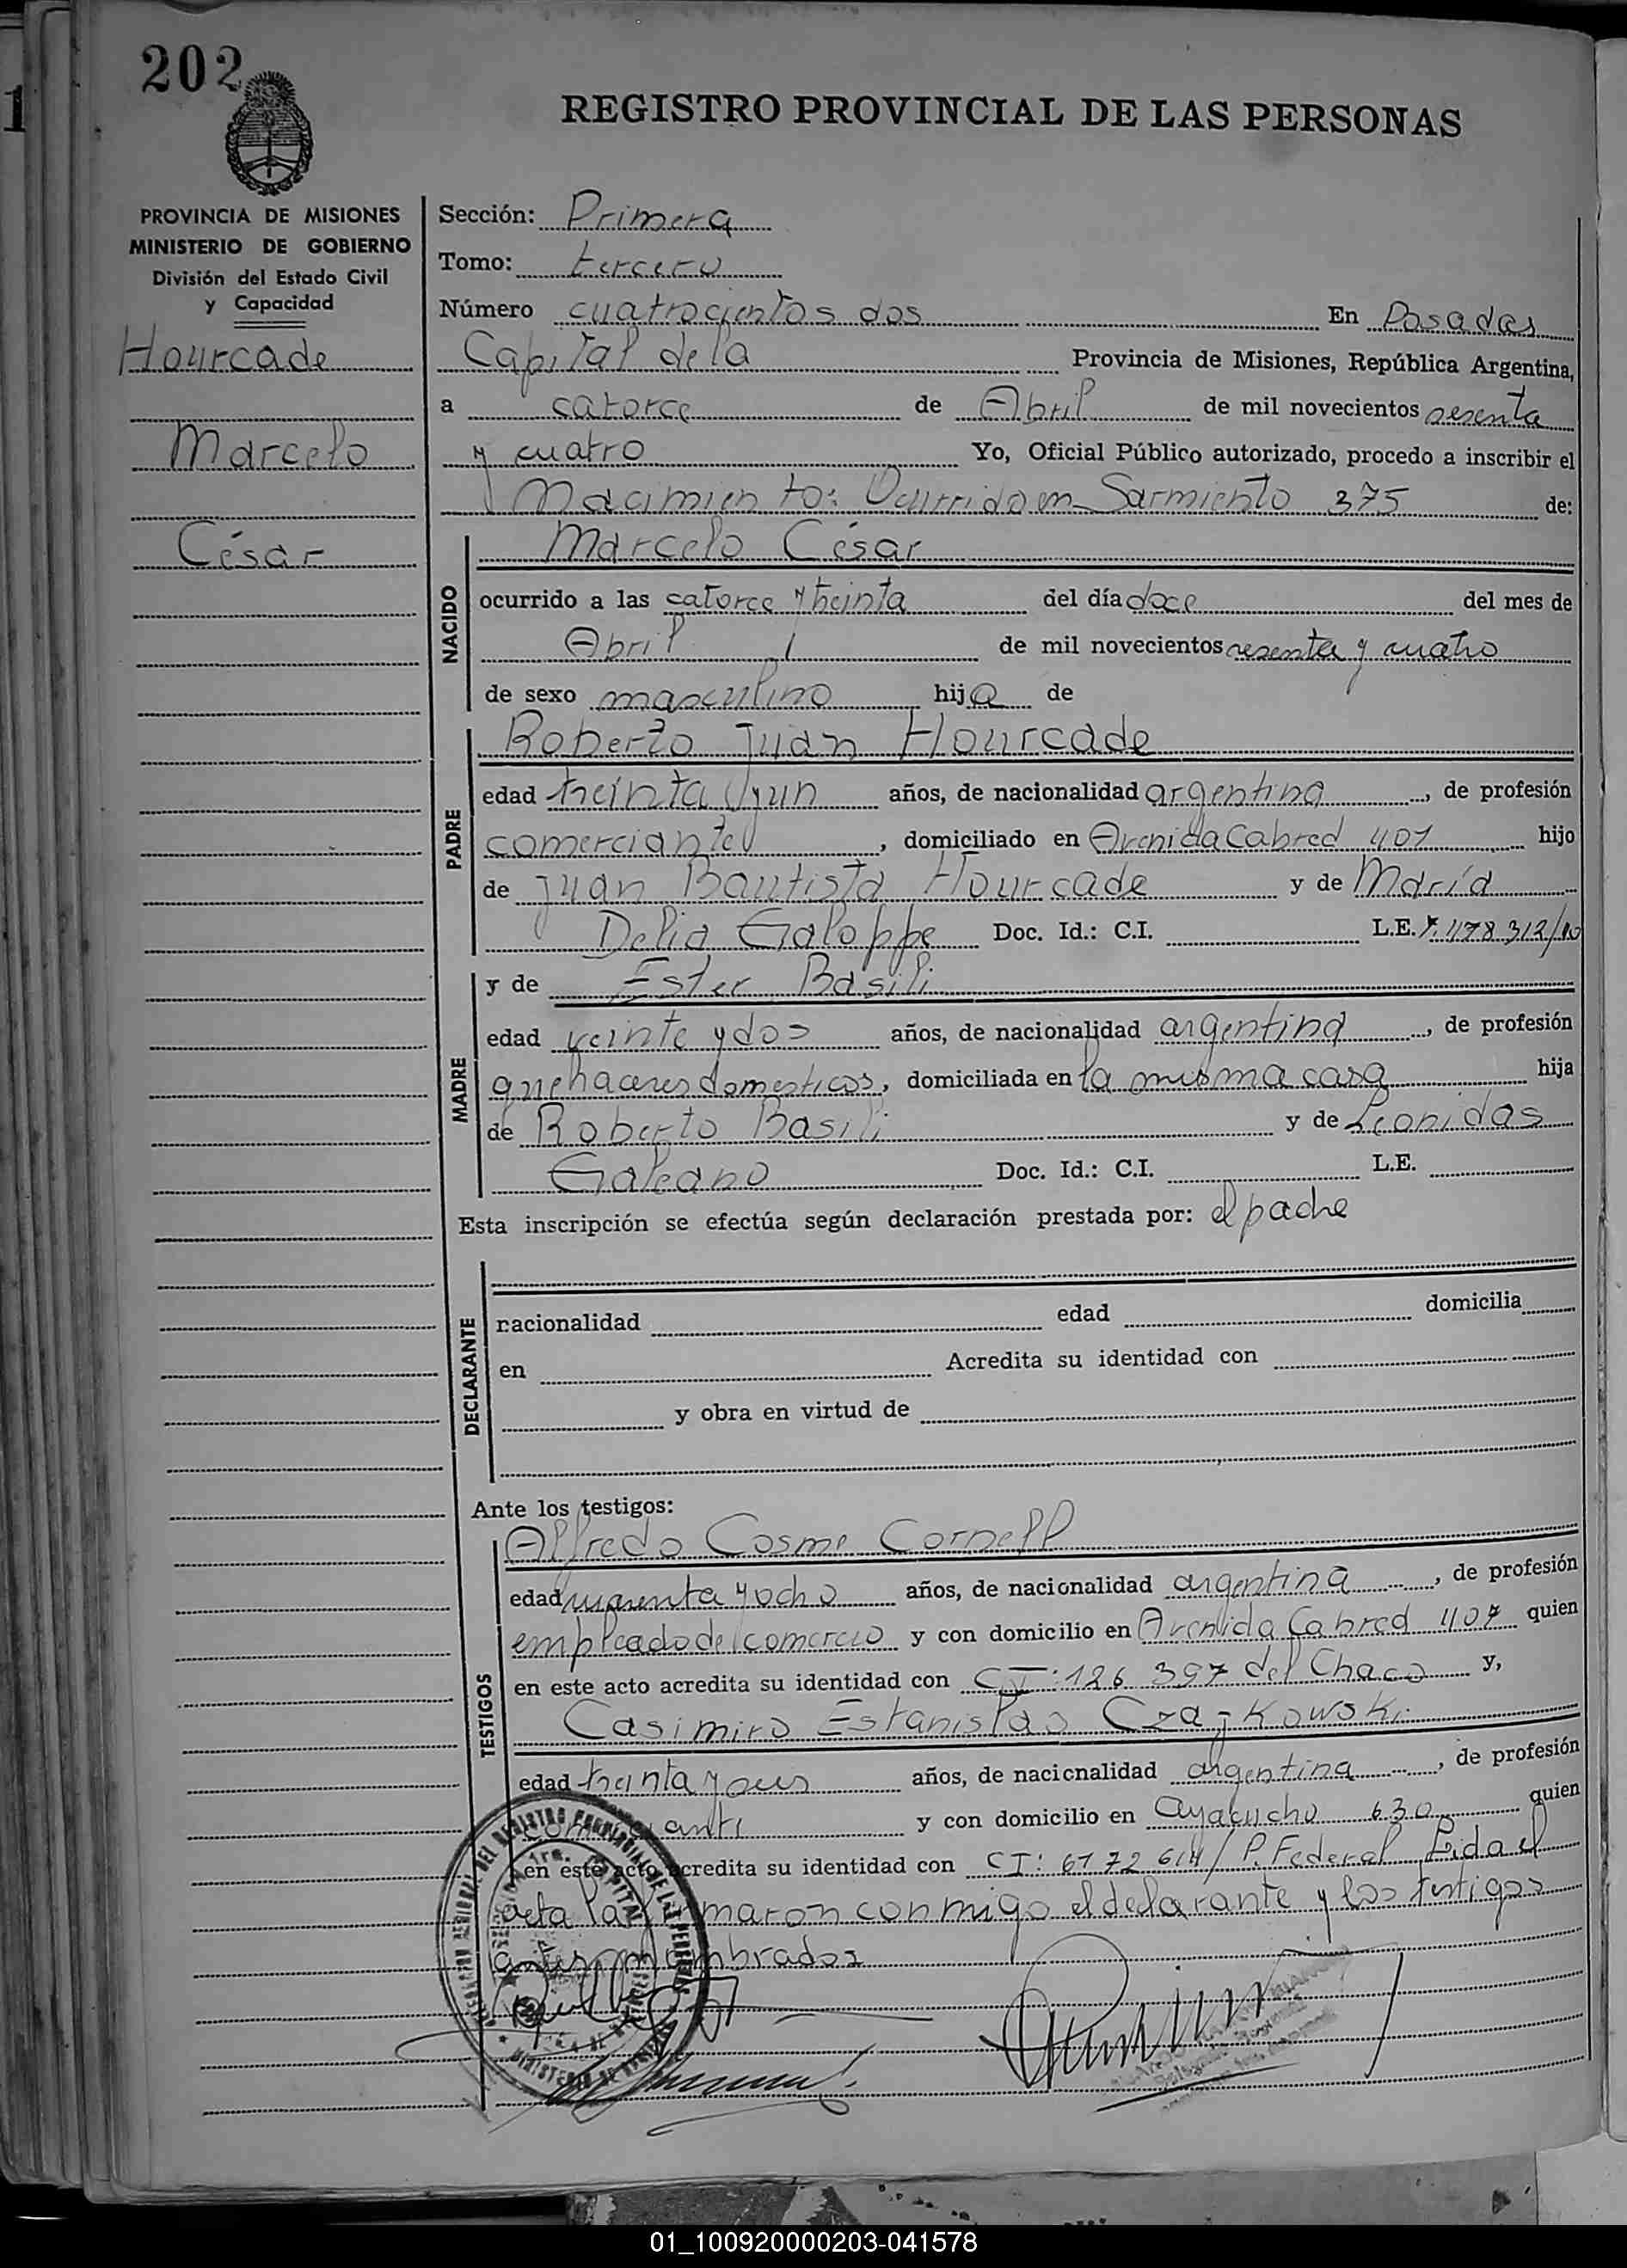 202
REGISTRO PROVINCIAL DE LAS PERSONAS
PROVINCIA DE MISIONES
MINISTERIO DE GOBIERNO
División del Estado Civil
y Capacidad
Hourcade
Marcelo
César
Sección: Primera
Tomo: tercero
Número cuatrocientos dos En Posadas
Capital de la Provincia de Misiones, República Argentina,
a catorce de Abril de mil novecientos sesenta
y cuatro Yo, Oficial Público autorizado, procedo a inscribir el
Nacimiento: Ocurrido en Sarmiento 375 de:
NACIDO
Marcelo César
ocurrido a las catorce y treinta del día doce del mes de
Abril de mil novecientos sesenta y cuatro
de sexo masculino hijo de
PADRE
Roberto Juan Hourcade
edad treinta y un años, de nacionalidad argentina, de profesión
comerciante, domiciliado en Avenida Cabred 407 hijo
de Juan Bautista Hourcade y de María
Delia Galoppe Doc. Id.: C.I. L.E.
MADRE
y de Ester Basili
edad veinte y dos años, de nacionalidad argentina, de profesión
quehaceres domesticos, domiciliada en la misma casa hija
de Roberto Basili y de Leonidas
Galeano Doc. Id.: C.I. L.E.
Esta inscripción se efectúa según declaración prestada por: el padre
DECLARANTE
nacionalidad edad domicilia
en Acredita su identidad con
y obra en virtud de
Ante los testigos:
TESTIGOS
Alfredo Cosme Cornell
edad cuarenta y ocho años, de nacionalidad argentina, de profesión
empleado de comercio y con domicilio en Avenida Cabred 407 quien
en este acto acredita su identidad con CI: 126 397 del Chaco y,
Casimiro Estanislao Czajkowski
edad treinta y años, de nacionalidad argentina, de profesión
y con domicilio en Ayacucho 630 quien
en este acto acredita su identidad con CI: 6172 614/ P. Federal Leida el
acta la firmaron conmigo el declarante y los testigos
antes nombrados
01_100920000203-041578